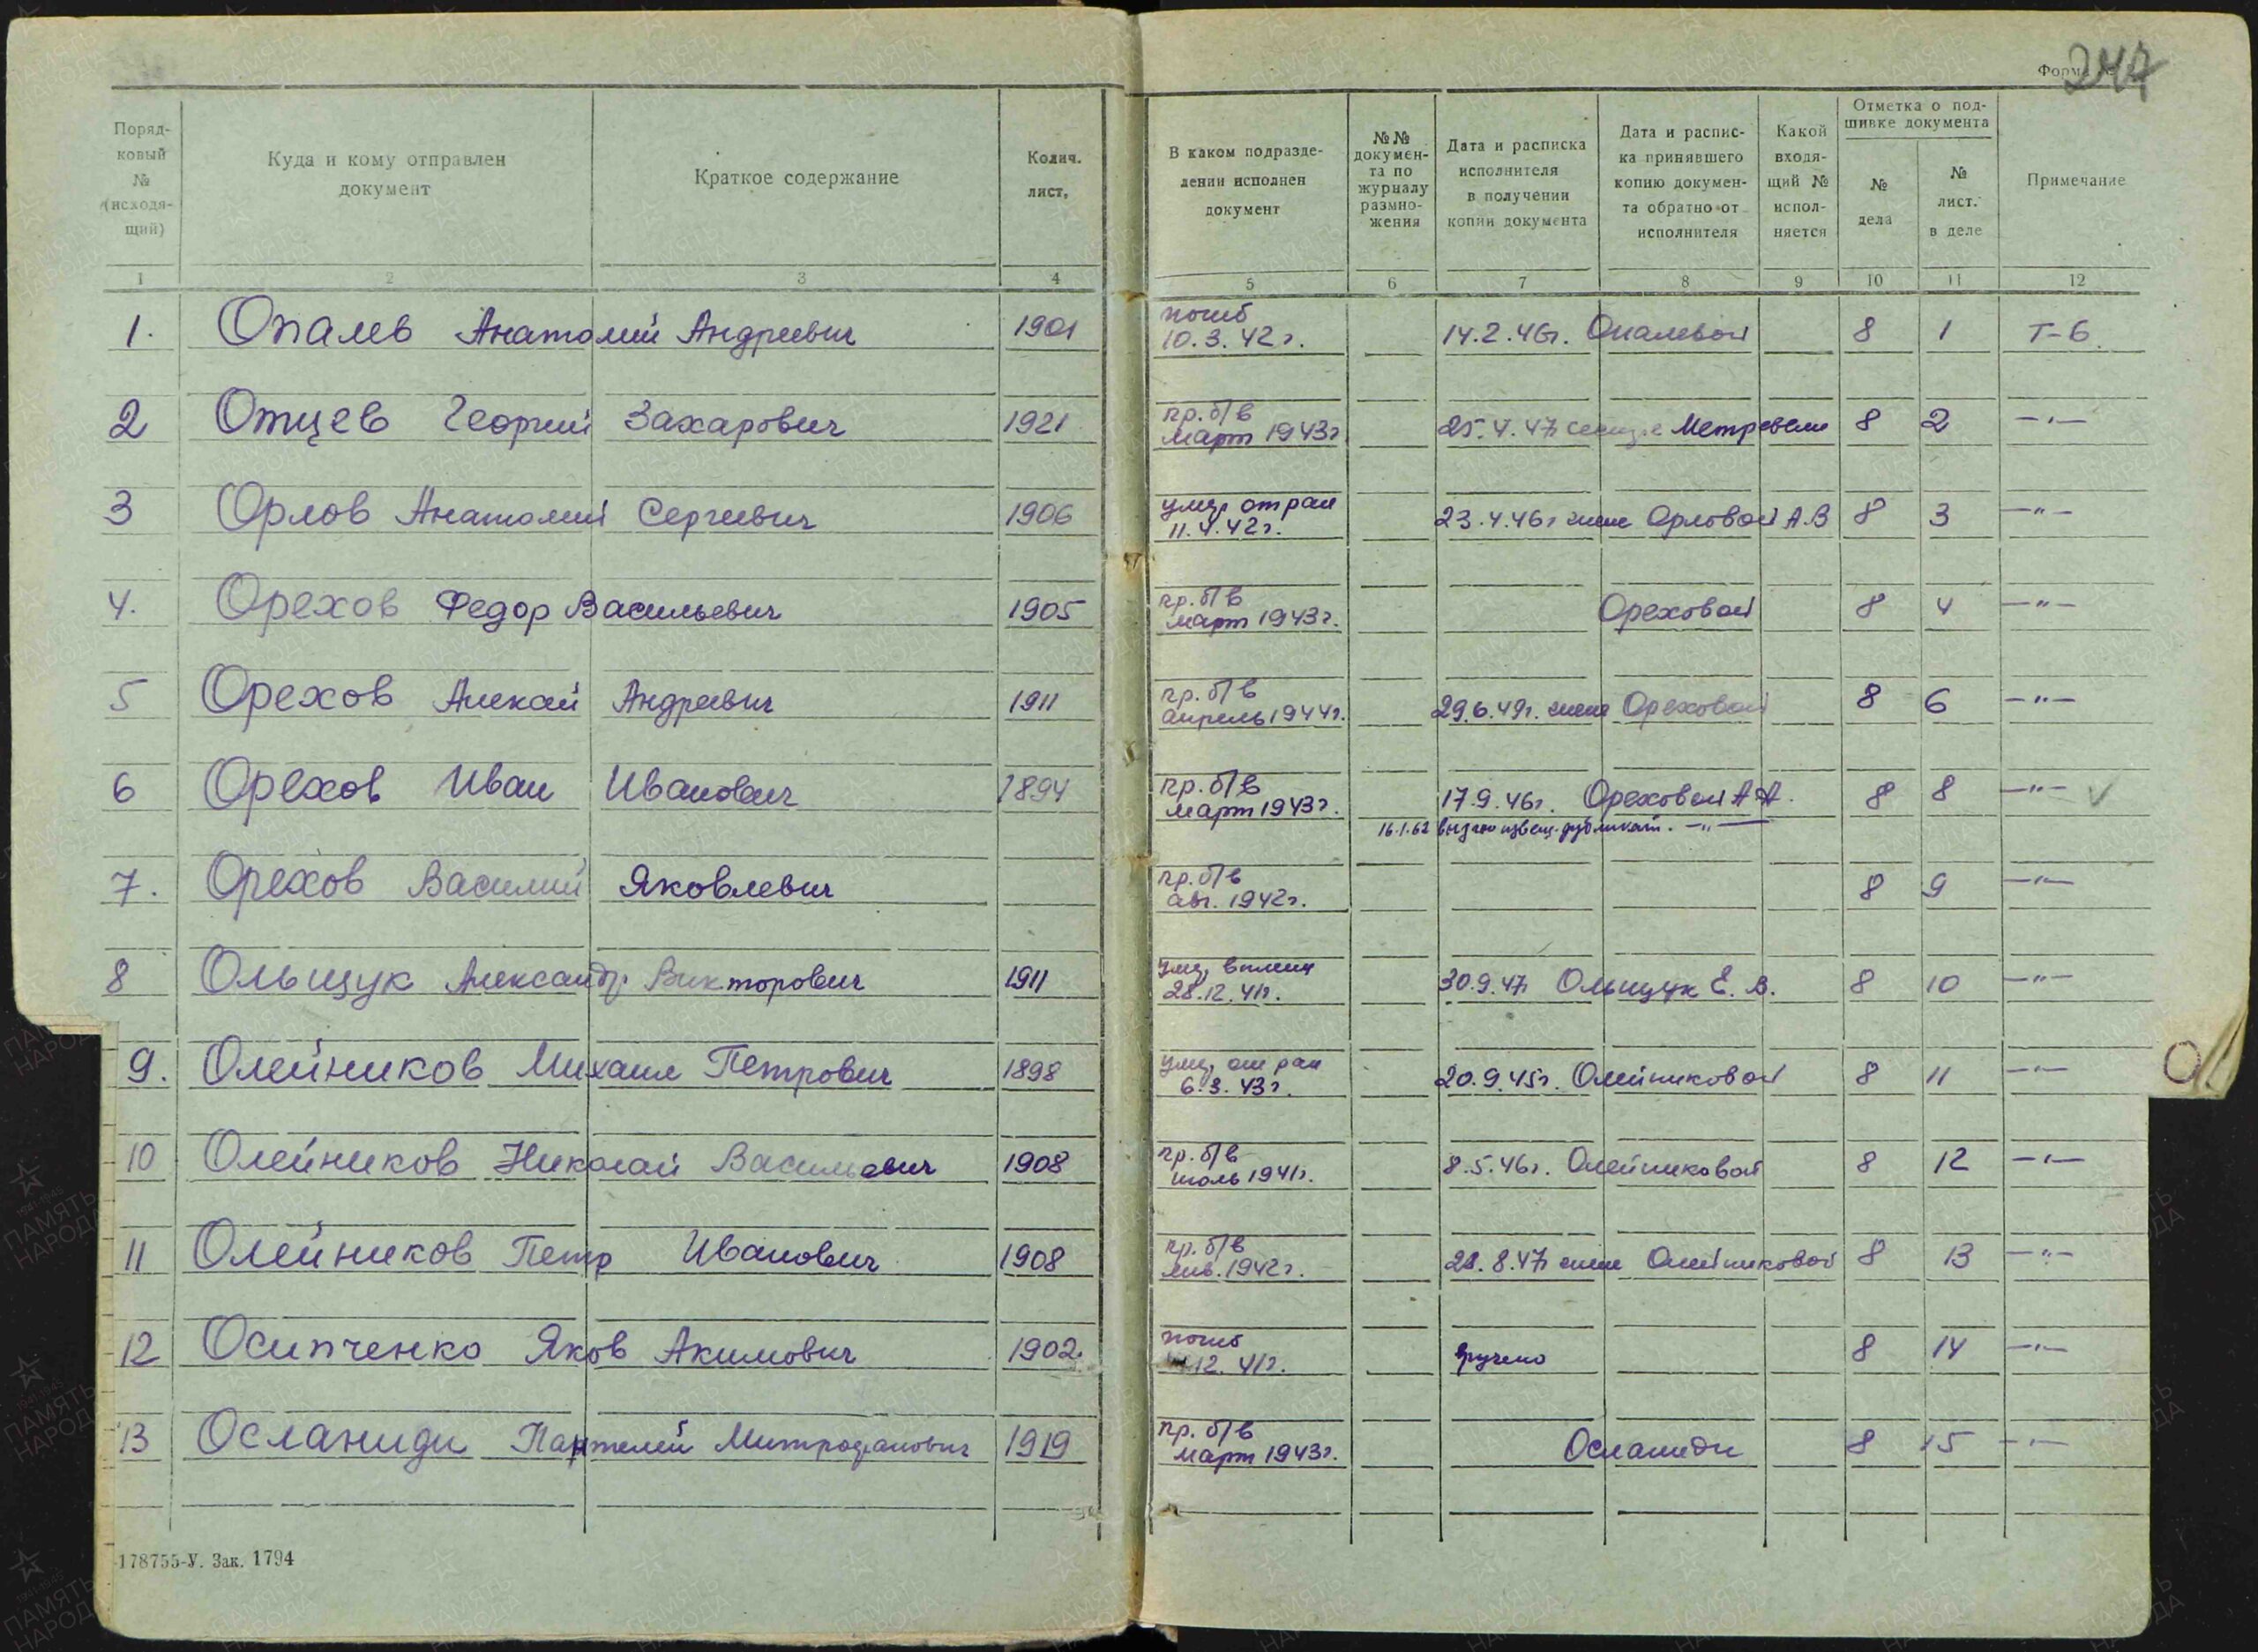 247
Форма
Поряд-
ковый
№
(исходя-
щий)
Куда и кому отправлен
документ
Краткое содержание
Колич.
лист,
В каком подразде-
лении исполнен
документ
№№
докумен-
та по
журналу
размно-
жения
Дата и расписка
исполнителя
в получении
копии документа
Дата и распис-
ка принявшего
копию докумен-
та обратно от
исполнителя
Какой
входя-
щий №
испол-
няется
Отметка о под-
шивке документа
№
дела
№
лист.
в деле
Примечание
1 2 3 4 5 6 7 8 9 10 11 12
1. Опалев Анатолий Андреевич 1901 погиб 10.3.42г. 14.2.46г. Опалевой 8 1 Т-6
2 Отцев Георгий Захарович 1921 пр. б/в март 1943г 25.4.47г Метревели 8 2 —"—
3 Орлов Анатолий Сергеевич 1906 умер от ран 11.4.42г. 23.4.46г жене Орловой А.В 8 3 —"—
4. Орехов Федор Васильевич 1905 пр. б/в март 1943г. Ореховой 8 4 —"—
5 Орехов Алексей Андреевич 1911 пр. б/в апрель 1944г. 29.6.49г. жене Ореховой 8 6 —"—
6 Орехов Иван Иванович 1894 пр. б/в март 1943г. 17.9.46г. Ореховой А А. 8 8 —"— ✓
16.1.62 выдано извещ. дубликат. —"—
7. Орехов Василий Яковлевич пр. б/в авг. 1942г. 8 9 —"—
8 Ольщук Александр Викторович 1911 умер в плену 28.12.41г. 30.9.47г Ольщук Е. В. 8 10 —"—
9. Олейников Михаил Петрович 1898 умер от ран 6.3.43г. 20.9.45г. Олейниковой 8 11 —"—
10 Олейников Николай Васильевич 1908 пр. б/в июль 1941г. 8.5.46г. Олейниковой 8 12 —"—
11 Олейников Петр Иванович 1908 пр. б/в янв. 1942г. 28.8.47г жене Олейниковой 8 13 —"—
12 Осипченко Яков Акимович 1902 погиб 12.41г. вручено 8 14 —"—
13 Осланиди Пантелей Митрофанович 1919 пр. б/в март 1943г. Осланиди 8 15 —"—
О
178755-У. Зак. 1794